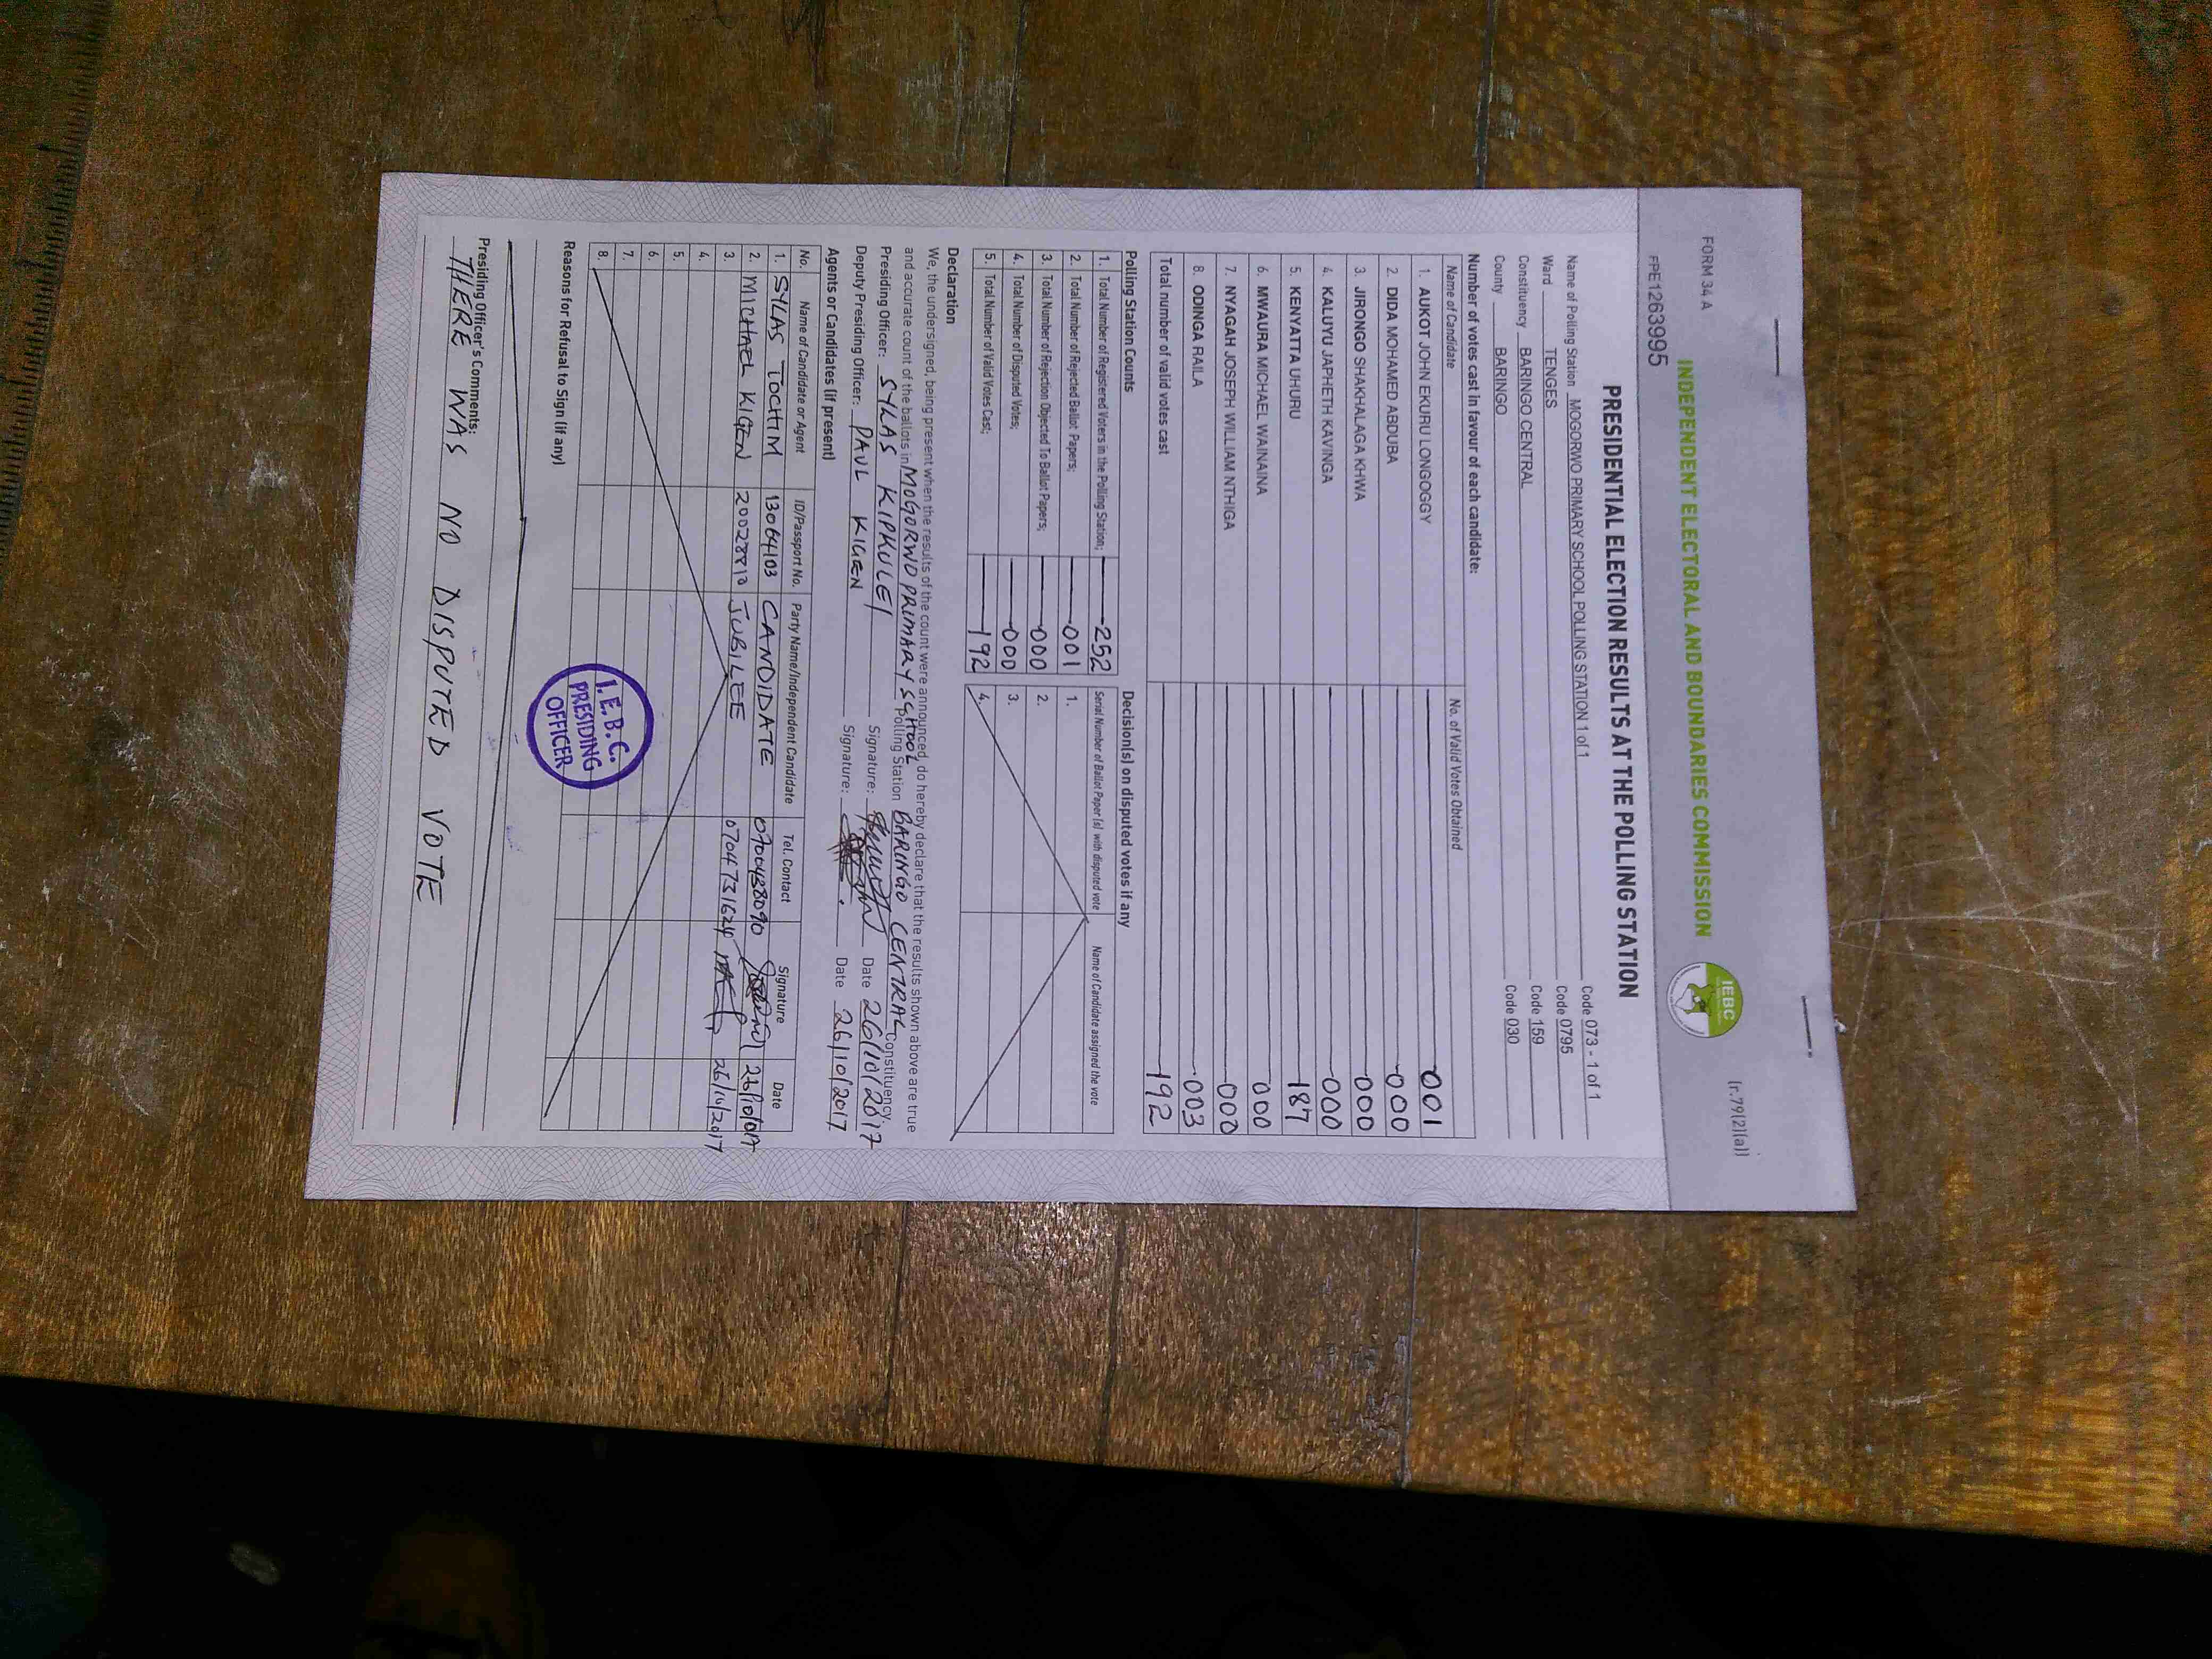 FORM 34 A
(r.79(2)(a))
INDEPENDENT ELECTORAL AND BOUNDARIES COMMISSION
IEBC
FPE1263995
PRESIDENTIAL ELECTION RESULTS AT THE POLLING STATION
Name of Polling Station MOGORWO PRIMARY SCHOOL POLLING STATION 1 of 1 Code 073 - 1 of 1
Ward TENGES Code 0795
Constituency BARINGO CENTRAL Code 159
County BARINGO Code 030
Number of votes cast in favour of each candidate:
Name of Candidate No. of Valid Votes Obtained
1. AUKOT JOHN EKURU LONGOGGY 001
2. DIDA MOHAMED ABDUBA 000
3. JIRONGO SHAKHALAGA KHWA 000
4. KALUYU JAPHETH KAVINGA 000
5. KENYATTA UHURU 187
6. MWAURA MICHAEL WAINAINA 000
7. NYAGAH JOSEPH WILLIAM NTHIGA 000
8. ODINGA RAILA 003
Total number of valid votes cast 192
Polling Station Counts
1. Total Number of Registered Voters in the Polling Station; 252
2. Total Number of Rejected Ballot Papers; 001
3. Total Number of Rejection Objected To Ballot Papers; 000
4. Total Number of Disputed Votes; 000
5. Total Number of Valid Votes Cast; 192
Decision(s) on disputed votes if any
Serial Number of Ballot Paper (s) with disputed vote Name of Candidate assigned the vote
1.
2.
3.
4.
Declaration
We, the undersigned, being present when the results of the count were announced, do hereby declare that the results shown above are true
and accurate count of the ballots in MOGORWO PRIMARY SCHOOL Polling Station BARINGO CENTRAL Constituency.
Presiding Officer: SYLAS KIPKULEI Signature: Date 26/10/2017
Deputy Presiding Officer: PAUL KIGEN Signature: Date 26/10/2017
Agents or Candidates (if present)
No. Name of Candidate or Agent ID/Passport No. Party Name/Independent Candidate Tel. Contact Signature Date
1. SYLAS TOCHIM 13064103 CANDIDATE 0700438090
2. MICHAEL KIGEN 20028810 JUBILEE 0704731624 26/10/2017
3.
4.
5.
6.
7.
8.
I.E.B.C.
PRESIDING
OFFICER
Reasons for Refusal to Sign (if any)
Presiding Officer's Comments:
THERE WAS NO DISPUTED VOTE